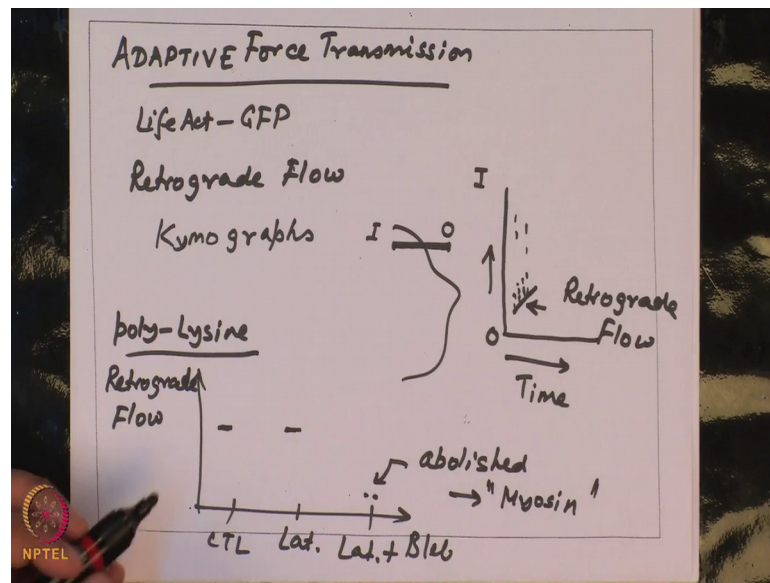 ADAPTIVE Force Transmission
LifeAct-GFP
Retrograde Flow
Kymographs
I
O
I
O
Retrograde
Flow
Time
poly-Lysine
Retrograde
Flow
abolished
→ "Myosin"
CTL
Lat.
Lat. + Bleb
NPTEL